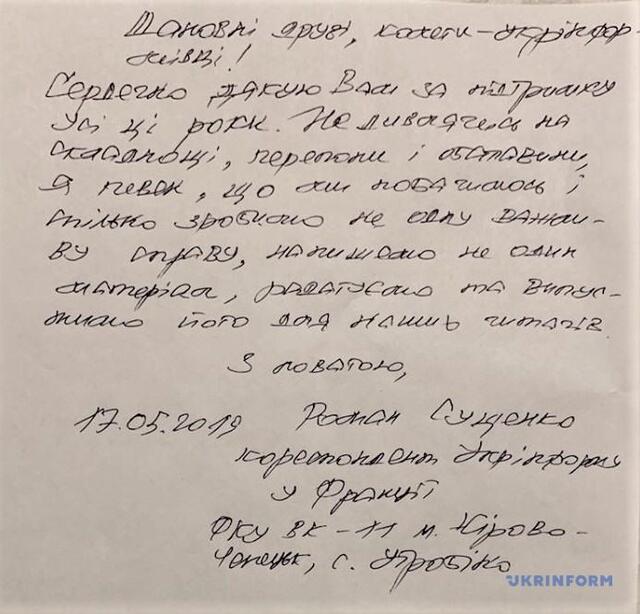 Шановні друзі, колеги-укрінфор-
мівці!
Сердечно дякую Вам за підтримку
усі ці роки. Не дивлячись на
складнощі, перепони і обставини,
я певен, що ми побачимось і
спільно зробимо не одну важли-
ву справу, напишемо не один
матеріал, редагуємо та випус-
тимо його для наших читачів.
З повагою,
17.05.2019 Роман Сущенко
кореспондент Укрінформу
у Франції
ФКУ ВК-11 м. Кірово-
Чепецьк, с. Утробіно
UKRINFORM